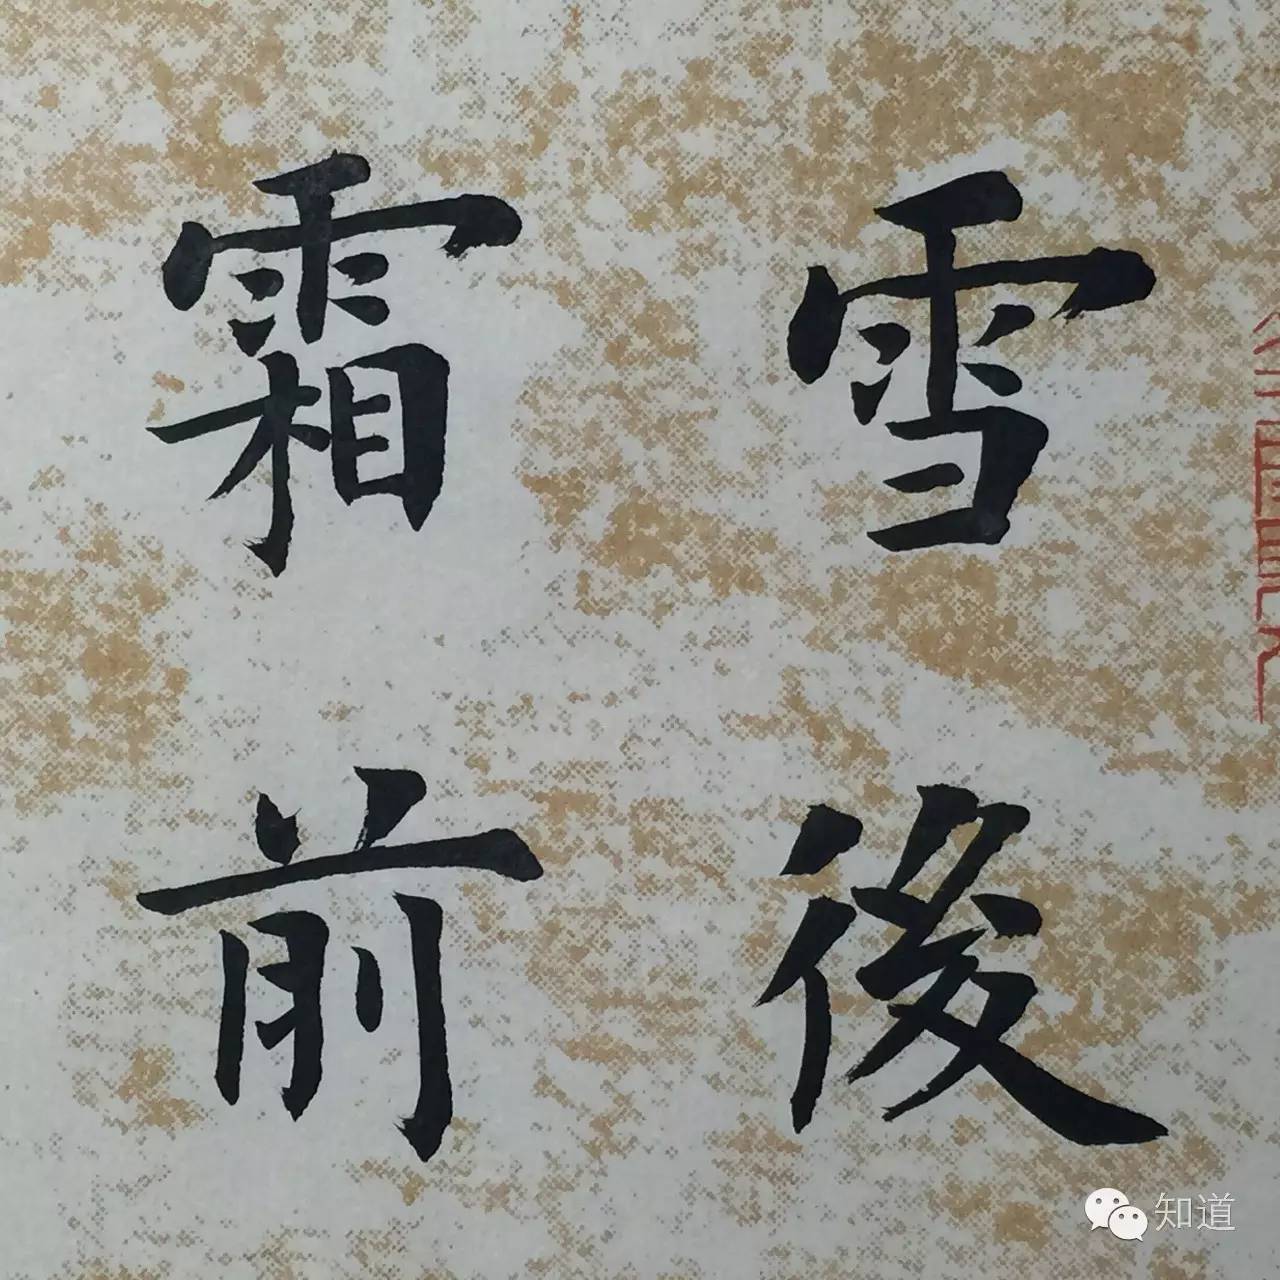 雪後
霜前
知道